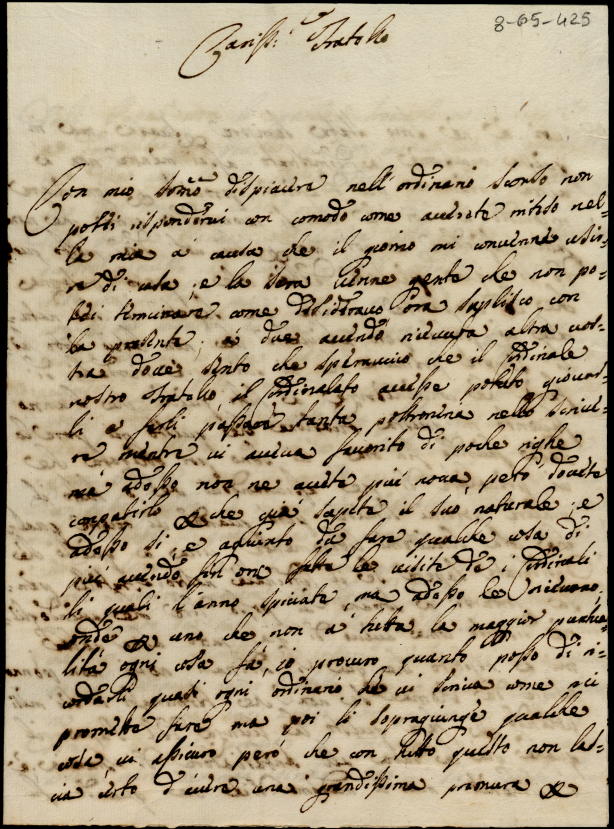 8-65-425
Cariss.mo Fratello
Con mio som̅o dispiacere nell'ordinario scorso non
potei rispondervi con comodo come averete inteso nel-
la mia a causa che il giorno mi convenne usci-
re di casa, e la sera venne gente che non po-
tei terminare come desideravo ora suplisco con
la presente, e due avendo ricevuta altra vos-
tra dove sento che speravivo che il Cardinale
nostro Fratello il Cardinalato avesse potuto giovar-
li e farli passare tanta poltronaria nello scrive-
re mentre vi aveva favorito di poche righe
mà adesso non ne avete più nova, però dovete
compatirlo che già sapete il suo naturale, e
adesso si, e agiunto da fare qualche cosa di
più avendo fin ora fatte le visite de i Cardinali
li quali l'anno spicciate, ma adesso le ricevono,
onde uno che non à tutta la maggior puntua-
lità ogni cosa fà, io procuro quanto posso di ri-
cordarli quasi ogni ordinario che vi scriva come mi
promette fare ma poi li sopragiunge qualche
cosa, vi assicuro però che con tutto questo non las-
cia certo d'avere una grandissima premura